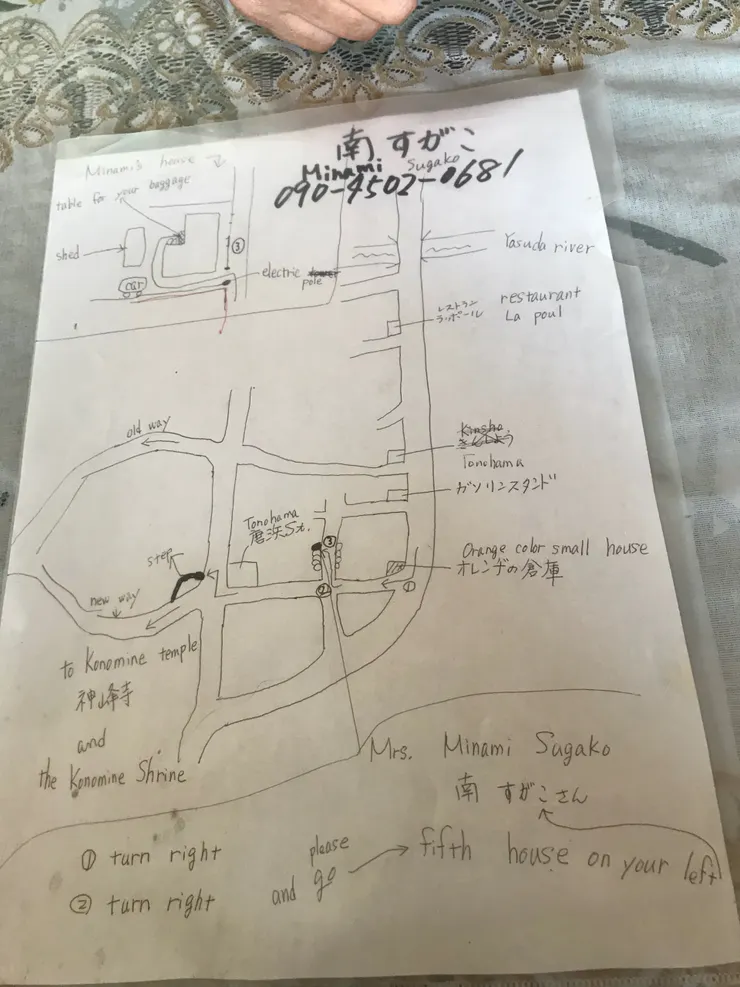 南 すがこ
Minami Sugako
090-4502-0681
Minami's house
table for your baggage
shed
car
③
electric tower
pole
Yasuda river
レストラン
ラ・ポール
restaurant
La poul
old way
Kinsha
Tonohama
ガソリンスタンド
Tonohama
唐浜St.
③
step
Orange color small house
オレンヂの倉庫
②
①
new way
to Konomine temple
神峰寺
and
the Konomine Shrine
Mrs. Minami Sugako
南 すがこさん
① turn right
② turn right
please
and go
fifth house on your left